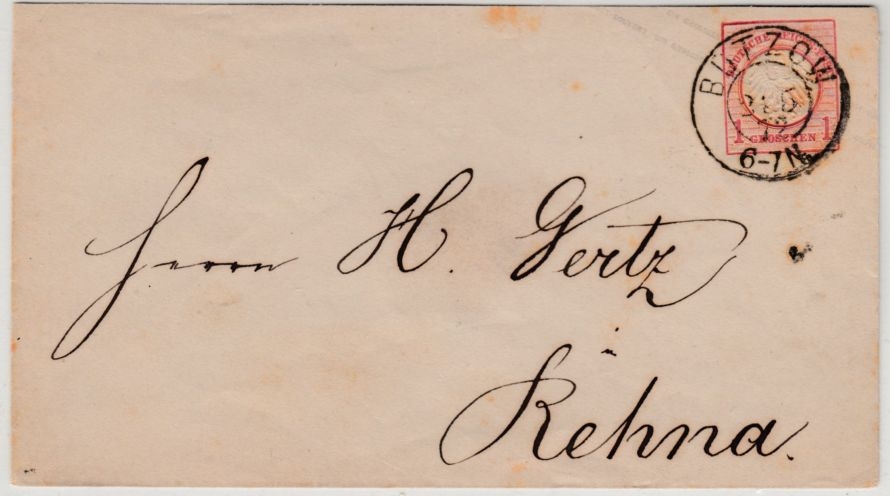 BÜTZOW
DEUTSCHE REICHS
1 GROSCHEN 1
6-7 N.
Herrn H. Gertz
in
Rehna.